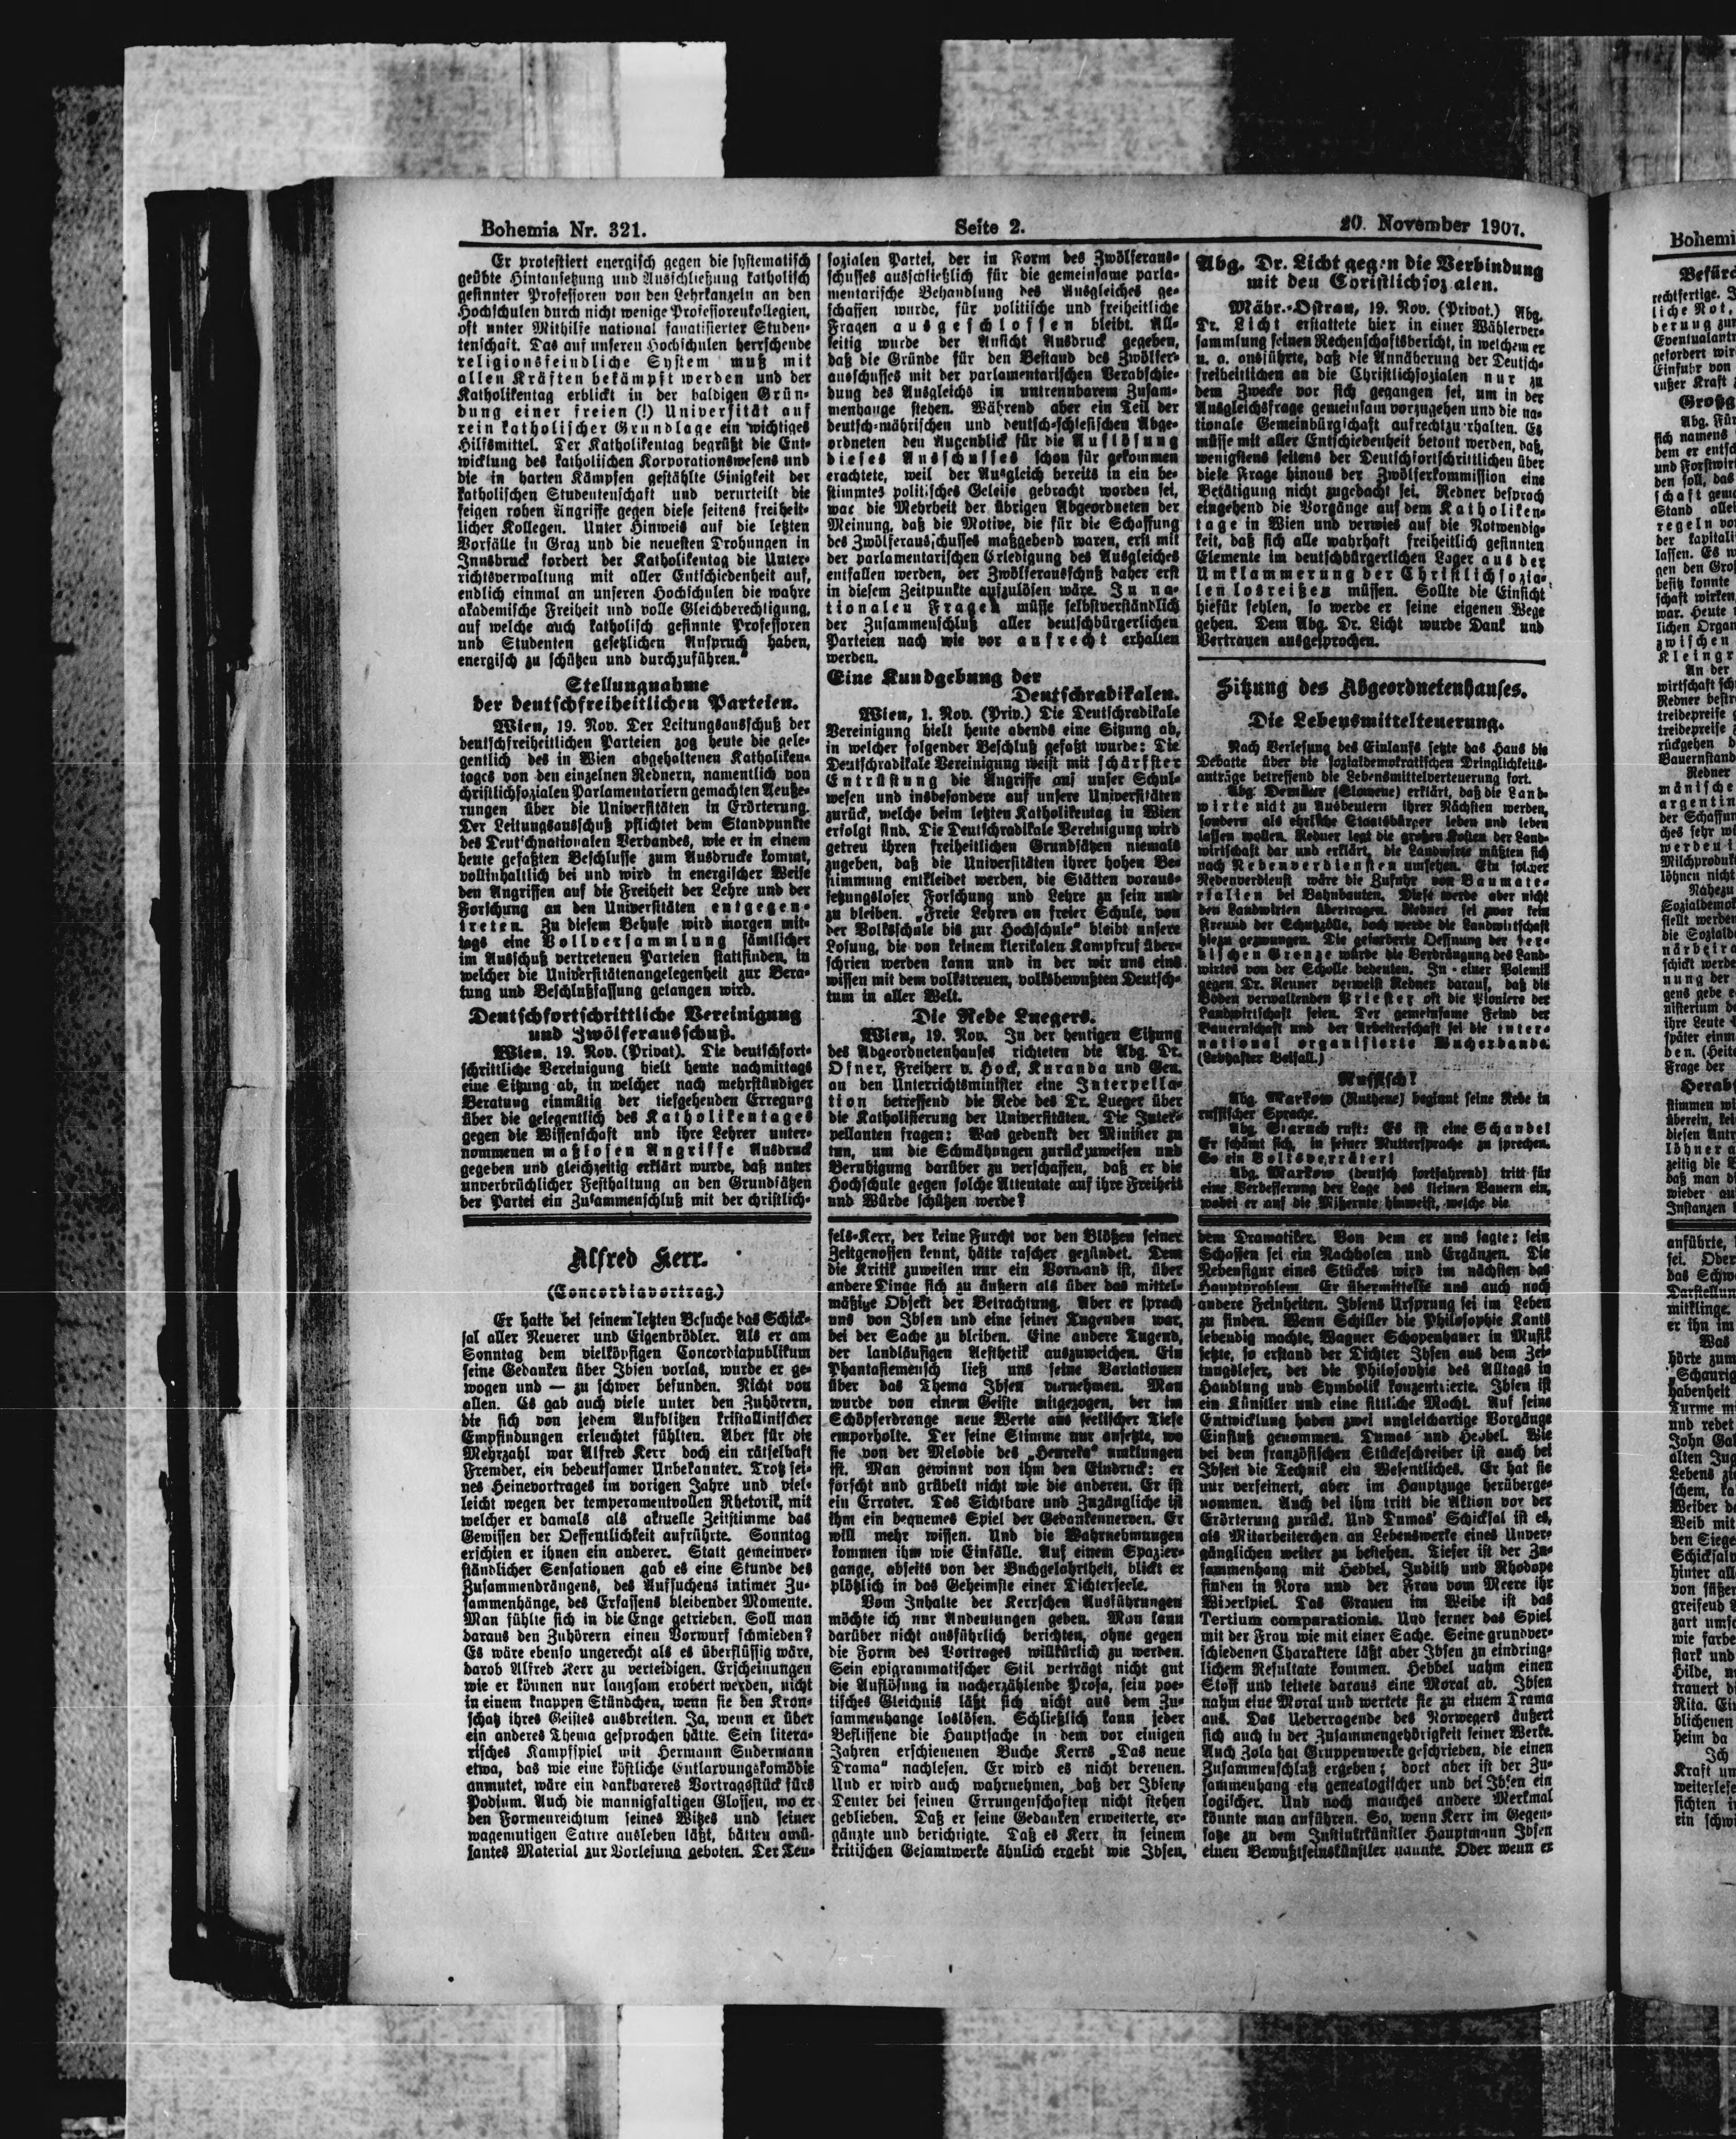 Bohemia Nr. 321.
Seite 2.
20. November 1907.
Er protestiert energisch gegen die systematisch
geübte Hintansetzung und Ausschließung katholisch
gesinnter Professoren von den Lehrkanzeln an den
Hochschulen durch nicht wenige Professorenkollegien,
oft unter Mithilfe national fanatisierter Studen-
tenschaft. Das auf unseren Hochschulen herrschende
religionsfeindliche System muß mit
allen Kräften bekämpft werden und der
Katholikentag erblickt in der baldigen Grün-
dung einer freien (!) Universität auf
rein katholischer Grundlage ein wichtiges
Hilfsmittel. Der Katholikentag begrüßt die Ent-
wicklung des katholischen Korporationswesens und
die in harten Kämpfen gestählte Einigkeit der
katholischen Studentenschaft und verurteilt die
feigen rohen Angriffe gegen diese seitens freiheit-
licher Kollegen. Unter Hinweis auf die letzten
Vorfälle in Graz und die neuesten Drohungen in
Innsbruck fordert der Katholikentag die Unter-
richtsverwaltung mit aller Entschiedenheit auf,
endlich einmal an unseren Hochschulen die wahre
akademische Freiheit und volle Gleichberechtigung,
auf welche auch katholisch gesinnte Professoren
und Studenten gesetzlichen Anspruch haben,
energisch zu schützen und durchzuführen.“
Stellungnahme
der deutschfreiheitlichen Parteien.
Wien, 19. Nov. Der Leitungsausschuß der
deutschfreiheitlichen Parteien zog heute die gele-
gentlich des in Wien abgehaltenen Katholiken-
tages von den einzelnen Rednern, namentlich von
christlichsozialen Parlamentariern gemachten Aeuße-
rungen über die Universitäten in Erörterung.
Der Leitungsausschuß pflichtet dem Standpunkte
des Deutschnationalen Verbandes, wie er in einem
heute gefaßten Beschlusse zum Ausdrucke kommt,
vollinhaltlich bei und wird in energischer Weise
den Angriffen auf die Freiheit der Lehre und der
Forschung an den Universitäten entgegen-
treten. Zu diesem Behufe wird morgen mit-
tags eine Vollversammlung sämtlicher
im Ausschuß vertretenen Parteien stattfinden, in
welcher die Universitätenangelegenheit zur Bera-
tung und Beschlußfassung gelangen wird.
Deutschfortschrittliche Vereinigung
und Zwölferausschuß.
Wien, 19. Nov. (Privat). Die deutschfort-
schrittliche Vereinigung hielt heute nachmittags
eine Sitzung ab, in welcher nach mehrstündiger
Beratung einmütig der tiefgehenden Erregung
über die gelegentlich des Katholikentages
gegen die Wissenschaft und ihre Lehrer unter-
nommenen maßlosen Angriffe Ausdruck
gegeben und gleichzeitig erklärt wurde, daß unter
unverbrüchlicher Festhaltung an den Grundsätzen
der Partei ein Zusammenschluß mit der christlich-
sozialen Partei, der in Form des Zwölferaus-
schusses ausschließlich für die gemeinsame parla-
mentarische Behandlung des Ausgleiches ge-
schaffen wurde, für politische und freiheitliche
Fragen ausgeschlossen bleibt. All-
seitig wurde der Ansicht Ausdruck gegeben,
daß die Gründe für den Bestand des Zwölfer-
ausschusses mit der parlamentarischen Verabschie-
dung des Ausgleichs in untrennbarem Zusam-
menhange stehen. Während aber ein Teil der
deutsch-mährischen und deutsch-schlesischen Abge-
ordneten den Augenblick für die Auflösung
dieses Ausschusses schon für gekommen
erachtete, weil der Ausgleich bereits in ein be-
stimmtes politisches Geleise gebracht worden sei,
war die Mehrheit der übrigen Abgeordneten der
Meinung, daß die Motive, die für die Schaffung
des Zwölferausschusses maßgebend waren, erst mit
der parlamentarischen Erledigung des Ausgleiches
entfallen werden, der Zwölferausschuß daher erst
in diesem Zeitpunkte aufzulösen wäre. In na-
tionalen Fragen müsse selbstverständlich
der Zusammenschluß aller deutschbürgerlichen
Parteien nach wie vor aufrecht erhalten
werden.
Eine Kundgebung der
Deutschradikalen.
Wien, 1. Nov. (Priv.) Die Deutschradikale
Vereinigung hielt heute abends eine Sitzung ab,
in welcher folgender Beschluß gefaßt wurde: Die
Deutschradikale Vereinigung weist mit schärfster
Entrüstung die Angriffe auf unser Schul-
wesen und insbesondere auf unsere Universitäten
zurück, welche beim letzten Katholikentag in Wien
erfolgt sind. Die Deutschradikale Vereinigung wird
getreu ihren freiheitlichen Grundsätzen niemals
zugeben, daß die Universitäten ihrer hohen Be-
stimmung entkleidet werden, die Stätten voraus-
setzungsloser Forschung und Lehre zu sein und
zu bleiben. „Freie Lehren an freier Schule, von
der Volksschule bis zur Hochschule“ bleibt unsere
Losung, die von keinem klerikalen Kampfruf über-
schrien werden kann und in der wir uns eins
wissen mit dem volkstreuen, volksbewußten Deutsch-
tum in aller Welt.
Die Rede Luegers.
Wien, 19. Nov. In der heutigen Sitzung
des Abgeordnetenhauses richteten die Abg. Dr.
Ofner, Freiherr v. Hock, Kuranda und Gen.
an den Unterrichtsminister eine Interpella-
tion betreffend die Rede des Dr. Lueger über
die Katholisierung der Universitäten. Die Inter-
pellanten fragen: Was gedenkt der Minister zu
tun, um die Schmähungen zurückzuweisen und
Beruhigung darüber zu verschaffen, daß er die
Hochschule gegen solche Attentate auf ihre Freiheit
und Würde schützen werde?
Abg. Dr. Licht gegen die Verbindung
mit den Christlichsozialen.
Mähr.-Ostrau, 19. Nov. (Privat.) Abg.
Dr. Licht erstattete hier in einer Wählerver-
sammlung seinen Rechenschaftsbericht, in welchem er
u. a. ausführte, daß die Annäherung der Deutsch-
freiheitlichen an die Christlichsozialen nur zu
dem Zwecke vor sich gegangen sei, um in der
Ausgleichsfrage gemeinsam vorzugehen und die na-
tionale Gemeinbürgschaft aufrechtzuerhalten. Es
müsse mit aller Entschiedenheit betont werden, daß,
wenigstens seitens der Deutschfortschrittlichen über
diese Frage hinaus der Zwölferkommission eine
Betätigung nicht zugedacht sei. Redner besprach
eingehend die Vorgänge auf dem Katholiken-
tage in Wien und verwies auf die Notwendig-
keit, daß sich alle wahrhaft freiheitlich gesinnten
Elemente im deutschbürgerlichen Lager aus der
Umklammerung der Christlichsozia-
len losreißen müssen. Sollte die Einsicht
hiefür fehlen, so werde er seine eigenen Wege
gehen. Dem Abg. Dr. Licht wurde Dank und
Vertrauen ausgesprochen.
Sitzung des Abgeordnetenhauses.
Die Lebensmittelteuerung.
Nach Verlesung des Einlaufs setzte das Haus die
Debatte über die sozialdemokratischen Dringlichkeits-
anträge betreffend die Lebensmittelverteuerung fort.
Abg. Demšar (Slowene) erklärt, daß die Land-
wirte nicht zu Ausbeutern ihrer Nächsten werden,
sondern als ehrliche Staatsbürger leben und leben
lassen wollen. Redner legt die großen Kosten der Land-
wirtschaft dar und erklärt, die Landwirte müßten sich
nach Nebenverdiensten umsehen. Ein solcher
Nebenverdienst wäre die Zufuhr von Baumate-
rialien bei Bahnbauten. Diese werde aber nicht
den Landwirten übertragen. Redner sei zwar kein
Freund der Schutzzölle, doch werde die Landwirtschaft
hiezu gezwungen. Die geforderte Oeffnung der ser-
bischen Grenze würde die Verdrängung des Land-
wirtes von der Scholle bedeuten. In einer Polemik
gegen Dr. Renner verweist Redner darauf, daß die
Böden verwaltenden Priester oft die Pioniere der
Landwirtschaft seien. Der gemeinsame Feind der
Bauernschaft und der Arbeiterschaft sei die inter-
national organisierte Wucherbande.
(Lebhafter Beifall.)
Russisch!
Abg. Markow (Ruthene) beginnt seine Rede in
russischer Sprache.
Abg. Staruch ruft: Es ist eine Schande!
Er schämt sich, in seiner Muttersprache zu sprechen.
So ein Volksverräter!
Abg. Markow (deutsch fortfahrend) tritt für
eine Verbesserung der Lage des kleinen Bauern ein,
wobei er auf die Mißernte hinweist, welche die
Alfred Kerr.
(Concordiavortrag.)
Er hatte bei seinem letzten Besuche das Schick-
sal aller Neuerer und Eigenbrödler. Als er am
Sonntag dem vielköpfigen Concordiapublikum
seine Gedanken über Ibsen vorlas, wurde er ge-
wogen und — zu schwer befunden. Nicht von
allen. Es gab auch viele unter den Zuhörern,
die sich von jedem Aufblitzen kristallinischer
Empfindungen erleuchtet fühlten. Aber für die
Mehrzahl war Alfred Kerr doch ein rätselhaft
Fremder, ein bedeutsamer Unbekannter. Trotz sei-
nes Heinevortrages im vorigen Jahre und viel-
leicht wegen der temperamentvollen Rhetorik, mit
welcher er damals als aktuelle Zeitstimme das
Gewissen der Oeffentlichkeit aufrührte. Sonntag
erschien er ihnen ein anderer. Statt gemeinver-
ständlicher Sensationen gab es eine Stunde des
Zusammendrängens, des Aufsuchens intimer Zu-
sammenhänge, des Erfassens bleibender Momente.
Man fühlte sich in die Enge getrieben. Soll man
daraus den Zuhörern einen Vorwurf schmieden?
Es wäre ebenso ungerecht als es überflüssig wäre,
darob Alfred Kerr zu verteidigen. Erscheinungen
wie er können nur langsam erobert werden, nicht
in einem knappen Stündchen, wenn sie den Kron-
schatz ihres Geistes ausbreiten. Ja, wenn er über
ein anderes Thema gesprochen hätte. Sein litera-
risches Kampfspiel mit Hermann Sudermann
etwa, das wie eine köstliche Entlarvungskomödie
anmutet, wäre ein dankbareres Vortragsstück fürs
Podium. Auch die mannigfaltigen Glossen, wo er
den Formenreichtum seines Witzes und seiner
wagemutigen Satire ausleben läßt, hätten amü-
santes Material zur Vorlesung geboten. Der Teu-
fels-Kerr, der keine Furcht vor den Blößen seiner
Zeitgenossen kennt, hätte rascher gezündet. Dem
die Kritik zuweilen nur ein Vorwand ist, über
andere Dinge sich zu äußern als über das mittel-
mäßige Objekt der Betrachtung. Aber er sprach
uns von Ibsen und eine seiner Tugenden war,
bei der Sache zu bleiben. Eine andere Tugend,
der landläufigen Aesthetik auszuweichen. Ein
Phantasiemensch ließ uns seine Variationen
über das Thema Ibsen vernehmen. Man
wurde von einem Geiste mitgezogen, der im
Schöpferdrange neue Werte aus seelischer Tiefe
emporholte. Der seine Stimme nur ansetzte, wo
sie von der Melodie des „Heureka“ umklungen
ist. Man gewinnt von ihm den Eindruck: er
forscht und grübelt nicht wie die anderen. Er ist
ein Errater. Das Sichtbare und Zugängliche ist
ihm ein bequemes Spiel der Gedankennerven. Er
will mehr wissen. Und die Wahrnehmungen
kommen ihm wie Einfälle. Auf einem Spazier-
gange, abseits von der Buchgelahrtheit, blickt er
plötzlich in das Geheimste einer Dichterseele.
Vom Inhalte der Kerrschen Ausführungen
möchte ich nur Andeutungen geben. Man kann
darüber nicht ausführlich berichten, ohne gegen
die Form des Vortrages willkürlich zu werden.
Sein epigrammatischer Stil verträgt nicht gut
die Auflösung in nacherzählende Prosa, sein poe-
tisches Gleichnis läßt sich nicht aus dem Zu-
sammenhange loslösen. Schließlich kann jeder
Beflissene die Hauptsache in dem vor einigen
Jahren erschienenen Buche Kerrs „Das neue
Drama“ nachlesen. Er wird es nicht bereuen.
Und er wird auch wahrnehmen, daß der Ibsen-
Deuter bei seinen Errungenschaften nicht stehen
geblieben. Daß er seine Gedanken erweiterte, er-
gänzte und berichtigte. Daß es Kerr in seinem
kritischen Gesamtwerke ähnlich ergeht wie Ibsen,
dem Dramatiker. Von dem er uns sagte: sein
Schaffen sei ein Nachholen und Ergänzen. Die
Nebenfigur eines Stückes wird im nächsten das
Hauptproblem. Er übermittelte uns auch noch
andere Feinheiten. Ibsens Ursprung sei im Leben
zu finden. Wenn Schiller die Philosophie Kants
lebendig machte, Wagner Schopenhauer in Musik
setzte, so erstand der Dichter Ibsen aus dem Zei-
tungsleser, der die Philosophie des Alltags in
Handlung und Symbolik konzentrierte. Ibsen ist
ein Künstler und eine sittliche Macht. Auf seine
Entwicklung haben zwei ungleichartige Vorgänge
Einfluß genommen. Dumas und Hebbel. Wie
bei dem französischen Stückeschreiber ist auch bei
Ibsen die Technik ein Wesentliches. Er hat sie
nur verfeinert, aber im Hauptzuge herüberge-
nommen. Auch bei ihm tritt die Aktion vor der
Erörterung zurück. Und Dumas' Schicksal ist es,
als Mitarbeiterchen an Lebenswerke eines Unver-
gänglichen weiter zu bestehen. Tiefer ist der Zu-
sammenhang mit Hebbel. Judith und Rhodope
finden in Nora und der Frau vom Meere ihr
Widerspiel. Das Grauen im Weibe ist das
Tertium comparationis. Und ferner das Spiel
mit der Frau wie mit einer Sache. Seine grundver-
schiedenen Charaktere läßt aber Ibsen zu eindring-
lichem Resultate kommen. Hebbel nahm einen
Stoff und leitete daraus eine Moral ab. Ibsen
nahm eine Moral und wertete sie zu einem Drama
aus. Das Ueberragende des Norwegers äußert
sich auch in der Zusammengehörigkeit seiner Werke.
Auch Zola hat Gruppenwerke geschrieben, die einen
Zusammenschluß ergeben; dort aber ist der Zu-
sammenhang ein genealogischer und bei Ibsen ein
logischer. Und noch manches andere Merkmal
könnte man anführen. So, wenn Kerr im Gegen-
satze zu dem Instinktkünstler Hauptmann Ibsen
einen Bewußtseinskünstler nannte. Oder wenn er